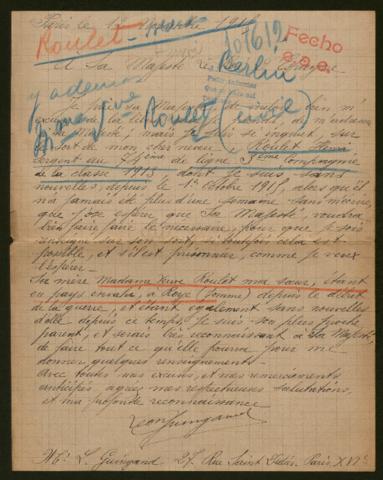 Paris le 1er Novembre 1915
Roulet
Fecho
Berlin
A Sa Majesté le Roi d'Espagne
y ademas
Mme Vve Roulet (civil)
Je prie sa Majesté de vouloir bien m'
excuser de la liberté que je prends, de m'adresser
sa Majesté; mais je suis si inquiet, sur
sort de mon cher neveu (Roulet Henri
Sergent au 74ème de ligne 3ème Compagnie
de la classe 1913) dont je suis sans
nouvelles, depuis le 1er Octobre 1915, alors qu'il
n'a jamais été plus d'une semaine sans m'écrire,
que j'ose espérer que Sa Majesté, voudra
bien faire faire le nécessaire, pour que je sois
renseigné sur son sort, si toutefois cela est
possible, et s'il est prisonnier, comme je veux
l'espérer.
Sa mère Madame Veuve Roulet ma sœur, étant
en pays envahi, à Roye (Somme) depuis le début
de la guerre, et étant également sans nouvelles
d'elle depuis ce temps, je suis son plus proche
parent, et serais très reconnaissant à Sa Majesté,
de faire tout ce qu'elle pourra pour me
donner, quelques renseignements.
Avec toutes mes excuses, et mes remerciements
anticipés agréez mes respectueuses salutations,
et ma profonde reconnaissance
Leon Guingand
Mr L. Guingand 27, Rue Saint Didier. Paris XVIe